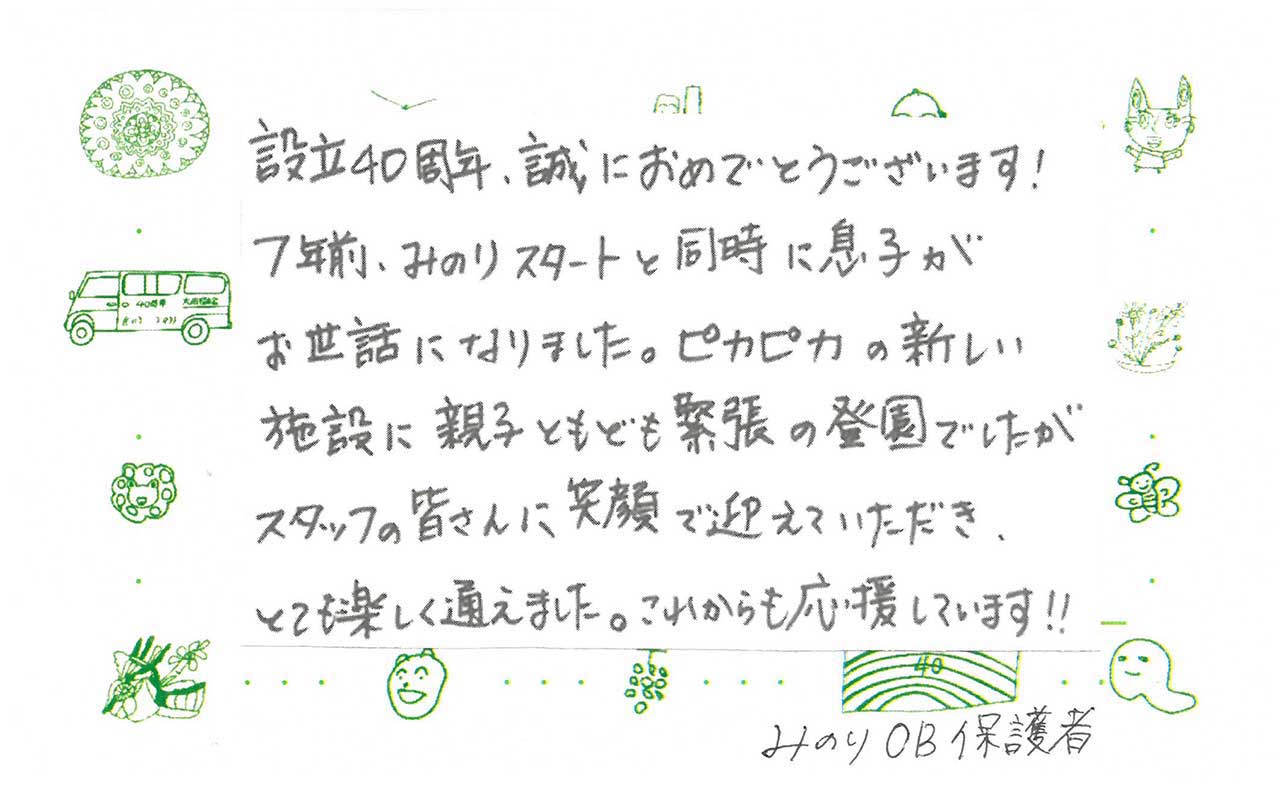 設立40周年、誠におめでとうございます!
7年前、みのりスタートと同時に息子が
お世話になりました。ピカピカの新しい
施設に親子ともども緊張の登園でしたが
スタッフの皆さんに笑顔で迎えていただき、
とても楽しく通えました。これからも応援しています!!
40周年
40
みのりOB保護者